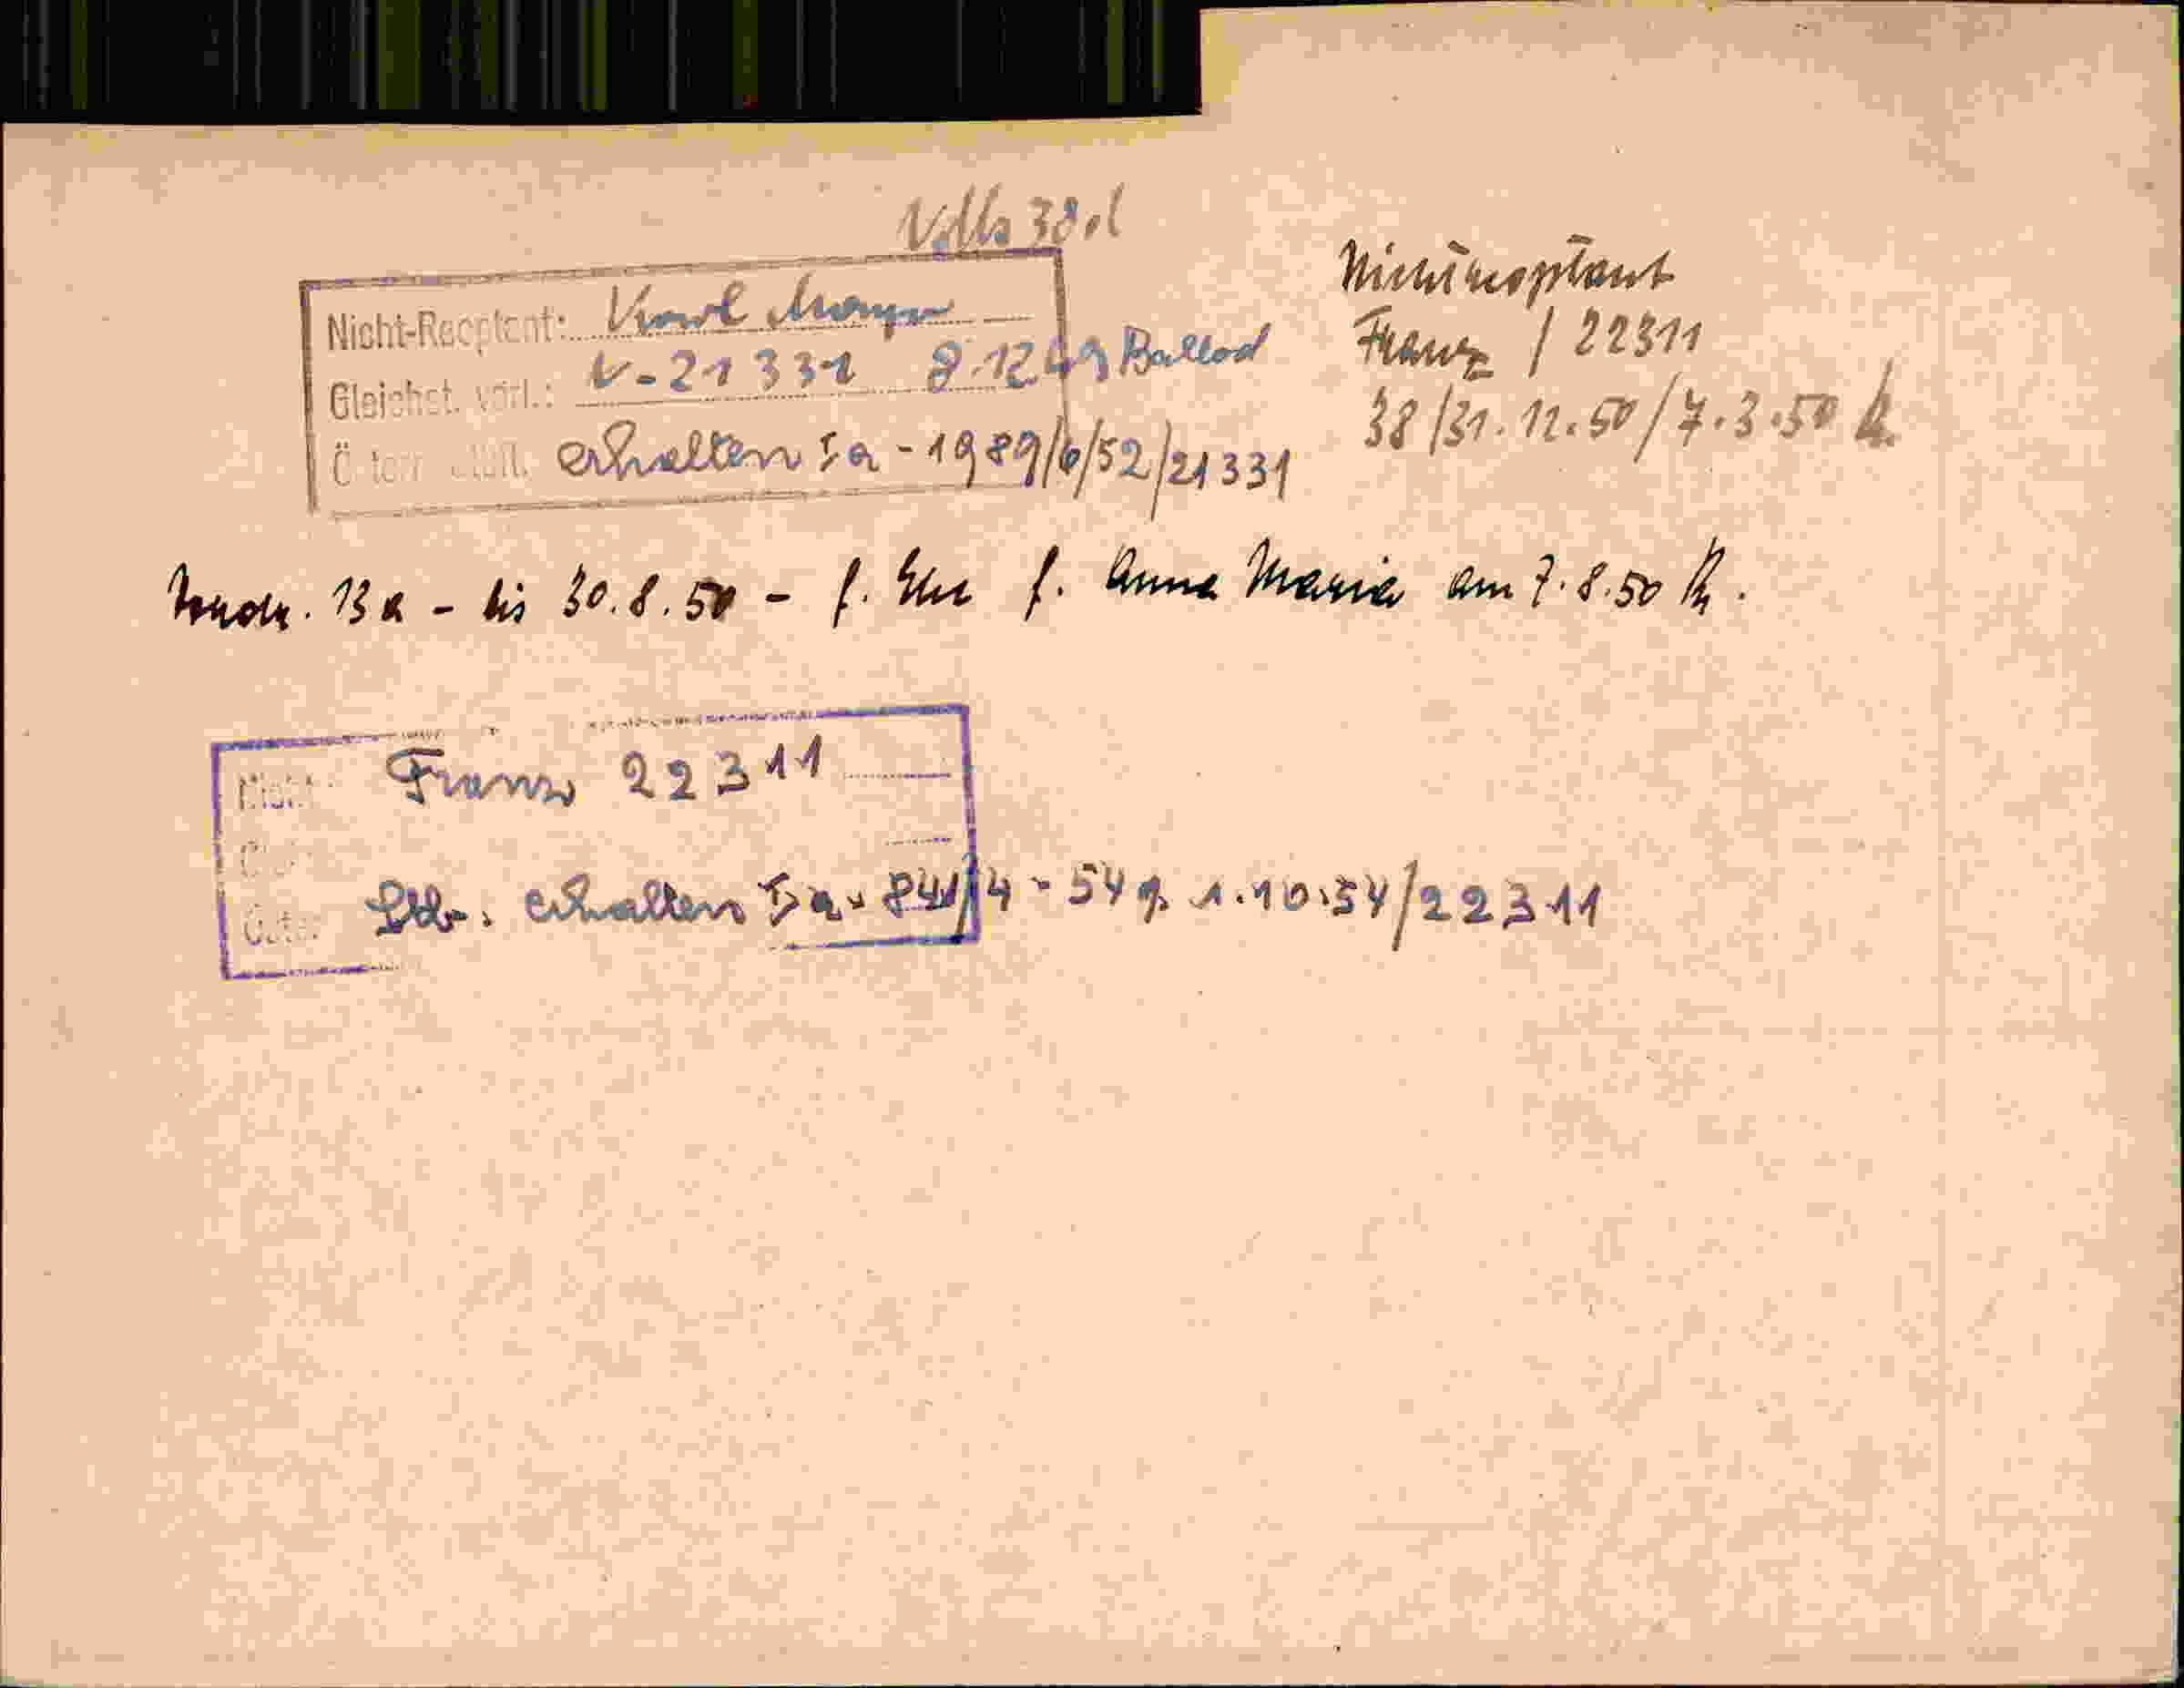 38.
Nicht-Reoptant: Karl Mayer
Gleichst. vorl.: V-21 331 8.12.49 Ballod
erhalten Ia - 1989/6/52/21331
Nichtreoptant
Franz / 22311
38/31.12.50/7.3.50
13a - bis 30.8.50 - f. Ehe f. Anna Maria am 7.8.50
Nicht Franz 22311
Stb. erhalten Ia - 841/4 - 54 g. 1.10.54/22311